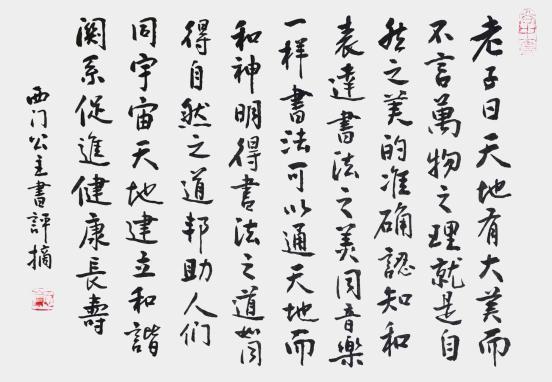 老子曰天地有大美而
不言萬物之理就是自
然之美的准确認知和
表達書法之美同音樂
一样書法可以通天地而
和神明得書法之道如同
得自然之道邦助人们
同宇宙天地建立和諧
関系促進健康長壽
西门公主書評摘